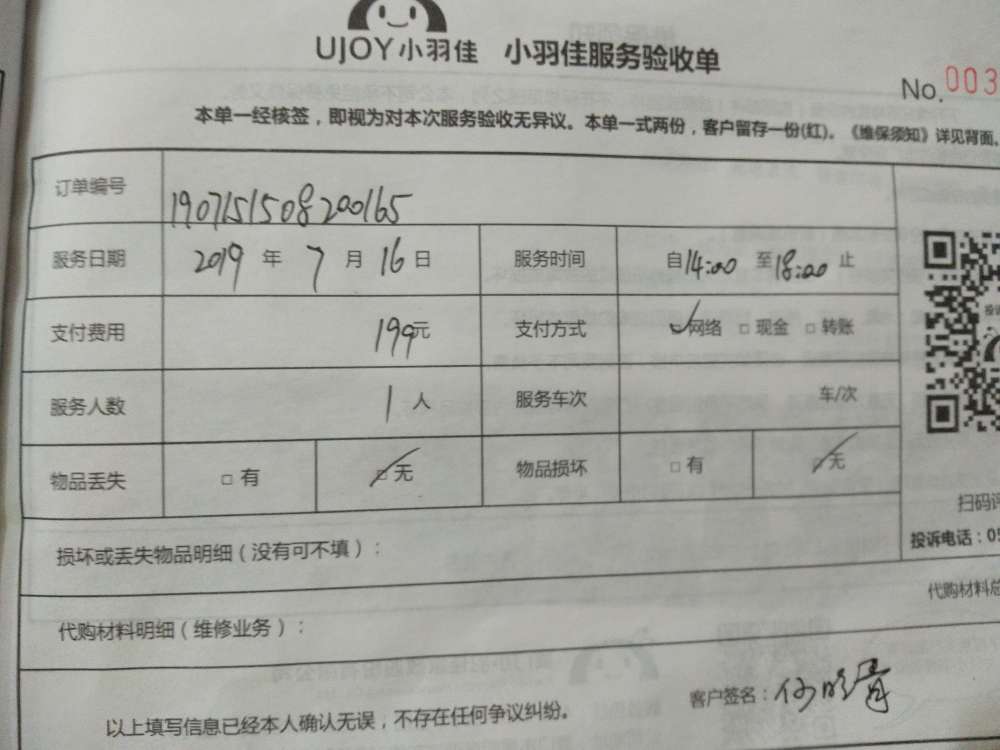 UJOY小羽佳 小羽佳服务验收单
No. 003
本单一经核签，即视为对本次服务验收无异议。本单一式两份，客户留存一份(红)。《维保须知》详见背面。
订单编号 1907151508200165
服务日期 2019 年 7 月 16 日 服务时间 自14:00 至18:00 止
支付费用 199元 支付方式 网络 现金 转账
服务人数 1 人 服务车次 车/次
物品丢失 有 无 物品损坏 有 无
扫码评
损坏或丢失物品明细（没有可不填）：
投诉电话：05
代购材料总
代购材料明细（维修业务）：
客户签名：
以上填写信息已经本人确认无误，不存在任何争议纠纷。